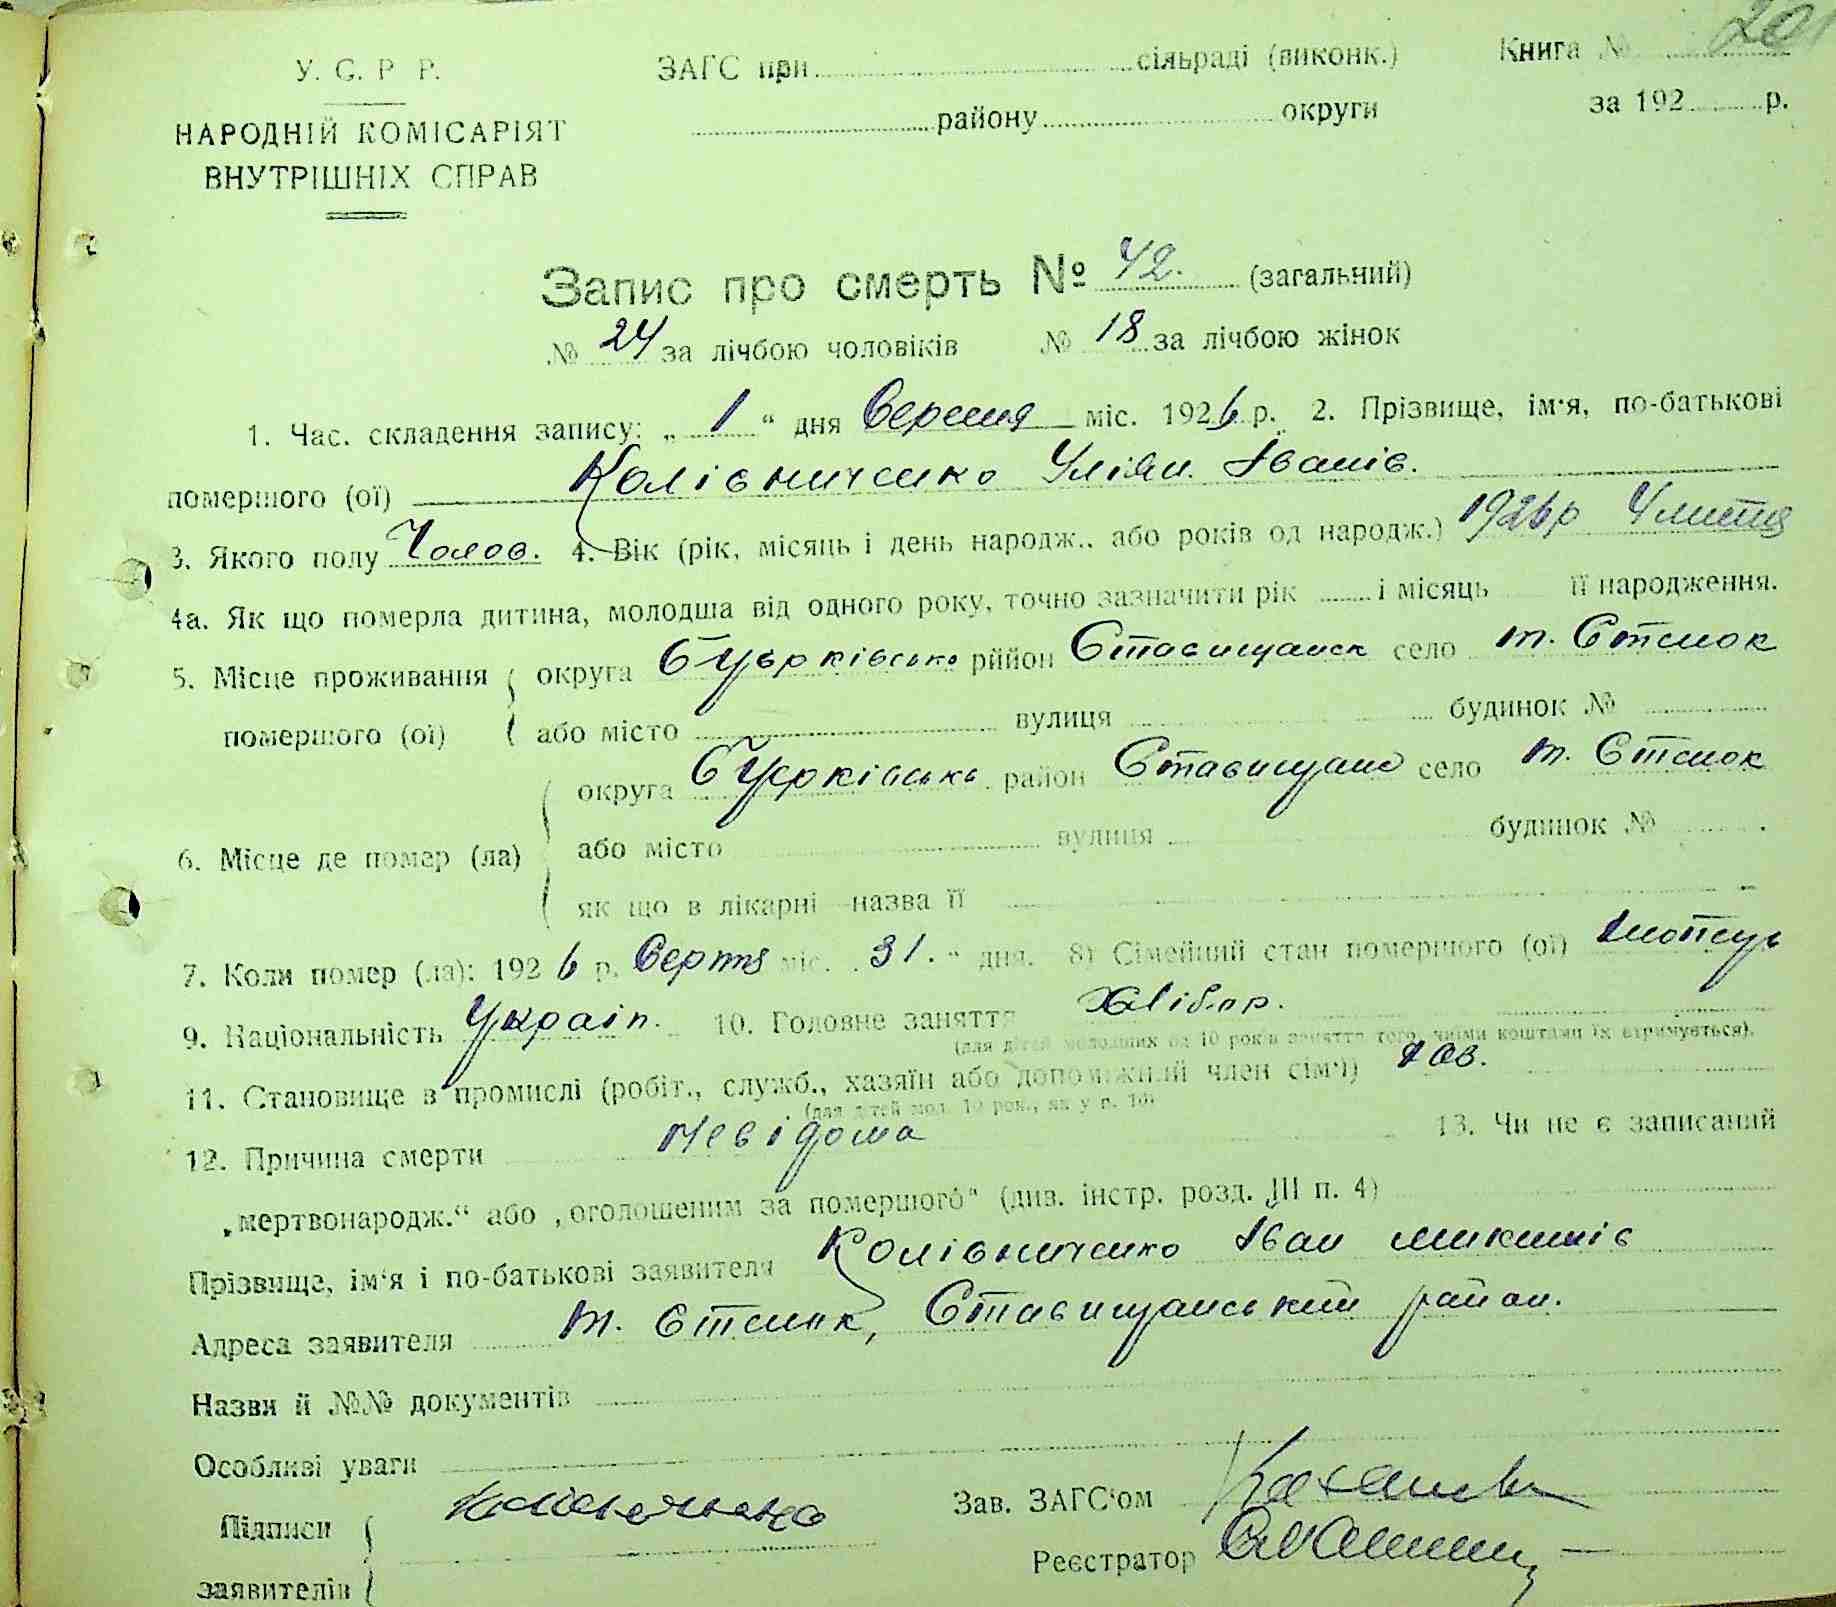 У. С. Р Р.
ЗАГС при сільраді (виконк.) Книга № 20
НАРОДНІЙ КОМІСАРІЯТ
району округи за 192 р.
ВНУТРІШНІХ СПРАВ
Запис про смерть № 42. (загальний)
№ 24 за лічбою чоловіків № 18 за лічбою жінок
1. Час. складення запису: „ 1 “ дня Вересня міс. 1926 р. 2. Прізвище, ім'я, по-батькові
помершого (ої) Колівниченко Уліян. Іванів.
3. Якого полу Чолов. 4. Вік (рік, місяць і день народж.. або років од народж.) 1926 р 4 липця
4а. Як що померла дитина, молодша від одного року, точно зазначити рік і місяць її народження.
5. Місце проживання округа рййон Ставищанск село т. Стснок
помершого (ої) або місто вулиця будинок №
округа район Ставищанс село т. Стснок
6. Місце де помер (ла) або місто вулиця будинок №
як що в лікарні назва її
7. Коли помер (ла): 1926 р. Серпня міс. 31. “ дня. 8) Сімейний стан помершого (ої)
9. Національність Украін. 10. Головне заняття Хлібор.
(для дітей молодших од 10 років заняття того, чиїми коштами їх втримується).
11. Становище в промислі (робіт., служб., хазяїн або допоміжний член сім'ї)
(для дітей мол. 10 рок., як у п. 10)
12. Причина смерти Невідома 13. Чи не є записаний
„мертвонародж.“ або „оголошеним за помершого“ (див. інстр. розд. III п. 4)
Прізвище, ім'я і по-батькові заявителя Колівниченко Іван
Адреса заявителя т. Стснок, Ставищанський район.
Назви й №№ документів
Особливі уваги
Підписи Зав. ЗАГС'ом
заявителів Реєстратор